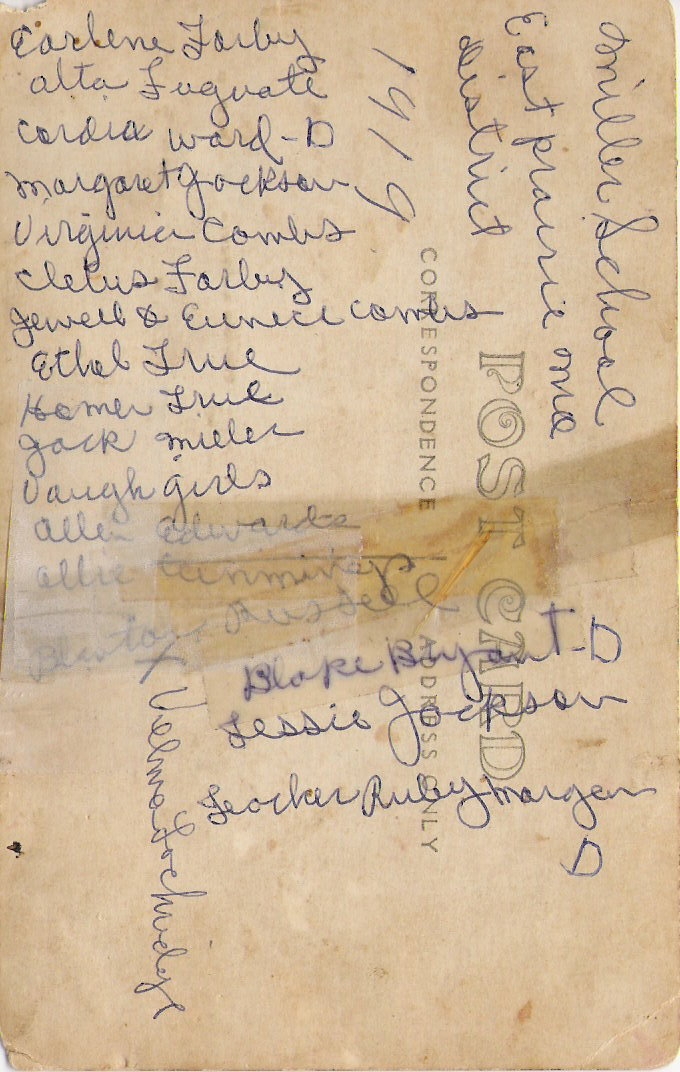 Earlene Farby
Alta Fuguate
Cordia Ward-D
Margaret Jackson
Virginia Combs
Cletus Farby
Jewell & Eunice Combs
Ethel True
Homer True
Jack Miller
Vaugh girls
Allen Edwards
Allie Cummings
Russell
Blake Bryant-D
Jessie Jackson
Teacher Ruby Morgan
D
+ Velma Lochridge
1919
Miller School
East Prairie Mo
District
POST CARD
CORRESPONDENCE
ADDRESS ONLY